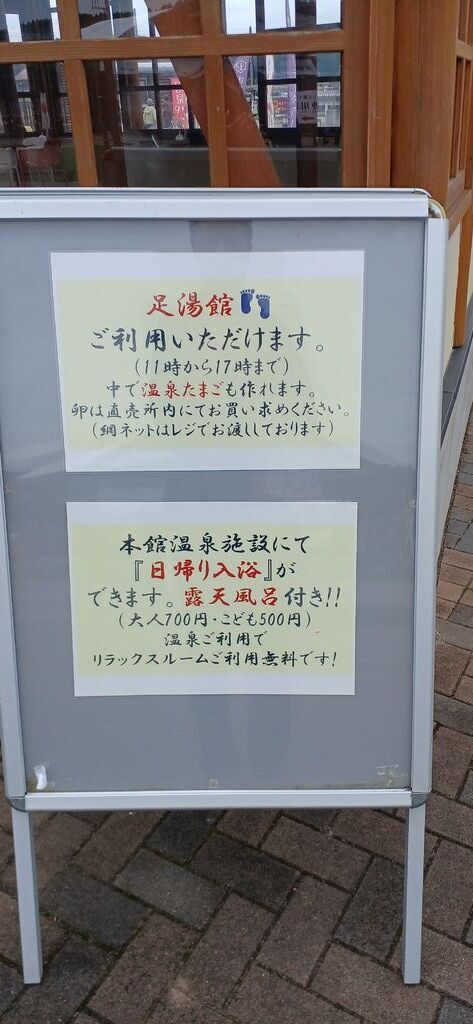 足湯館
ご利用いただけます。
(11時から17時まで)
中で温泉たまごも作れます。
卵は直売所内にてお買い求めください。
(網ネットはレジでお渡ししております)
本館温泉施設にて
『日帰り入浴』が
できます。露天風呂付き!!
(大人700円・こども500円)
温泉ご利用で
リラックスルームご利用無料です!